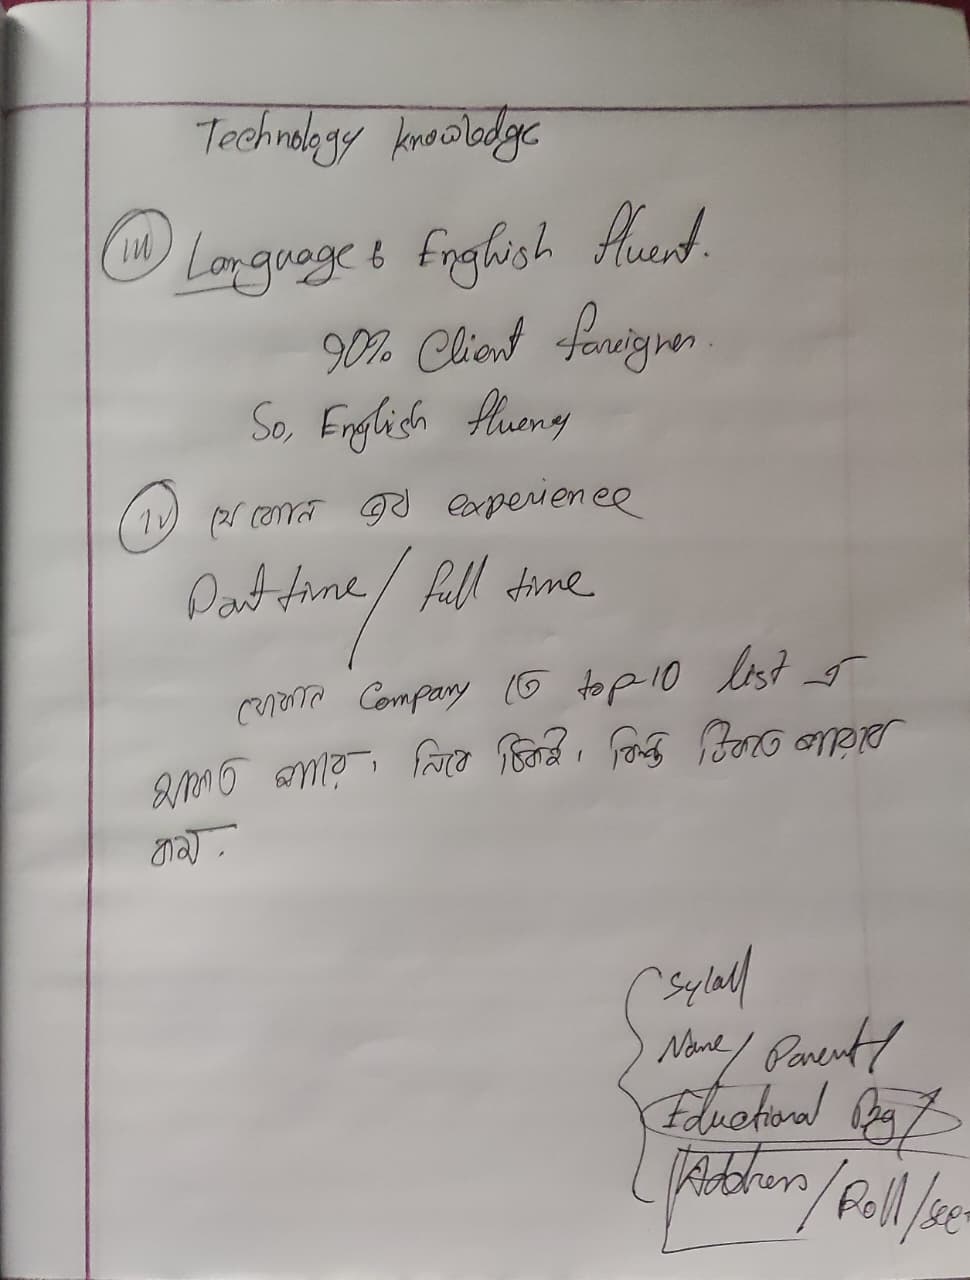 Technology Knowledge
(iii) Language : English fluent.
90% Client foreigner.
So, English fluency
(iv) যে কোন experience
Part time / full time
যেকোন Company তে top-10 list এ
থাকতে পারে, কিন্তু টিকতে পারবে
কম.
Name / Parent /
Eductional Bg /
Address / Roll / sec.